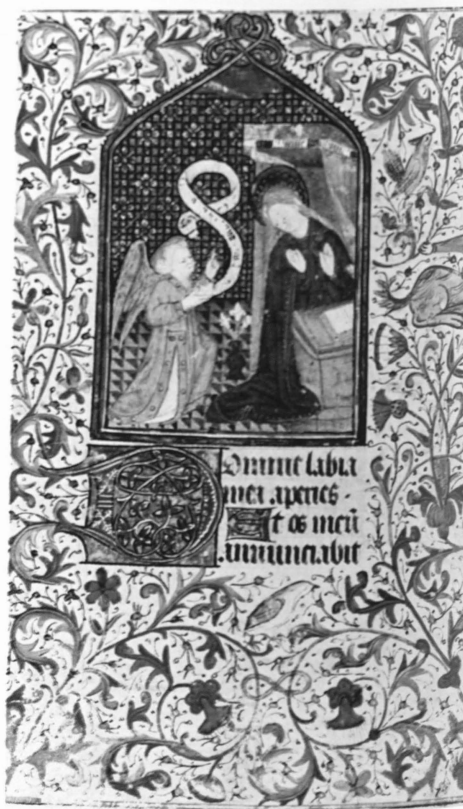 Domine labia
mea aperies ·
Et os meū
annunciabit